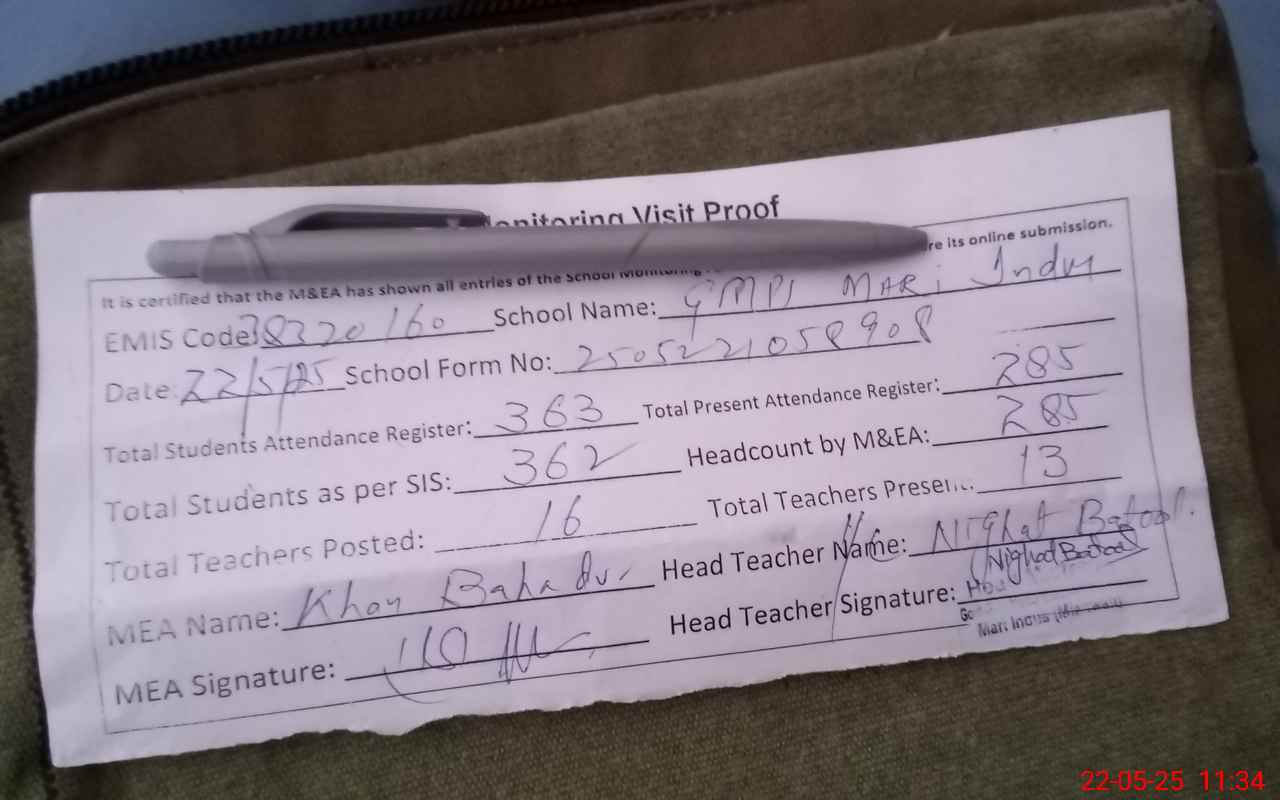 Monitoring Visit Proof
It is certified that the M&EA has shown all entries of the School Monitoring re its online submission.
EMIS Code: 38320160 School Name: GMPS MARI Indus
Date: 22/5/25 School Form No: 2505221058908
Total Students Attendance Register: 363 Total Present Attendance Register: 285
Total Students as per SIS: 362 Headcount by M&EA: 285
Total Teachers Posted: 16 Total Teachers Present: 13
MEA Name: Khan Bahadur Head Teacher Name: Nighat Batool.
(Nighat Batool)
MEA Signature: Head Teacher Signature:
Mari Indus
22-05-25 11:34